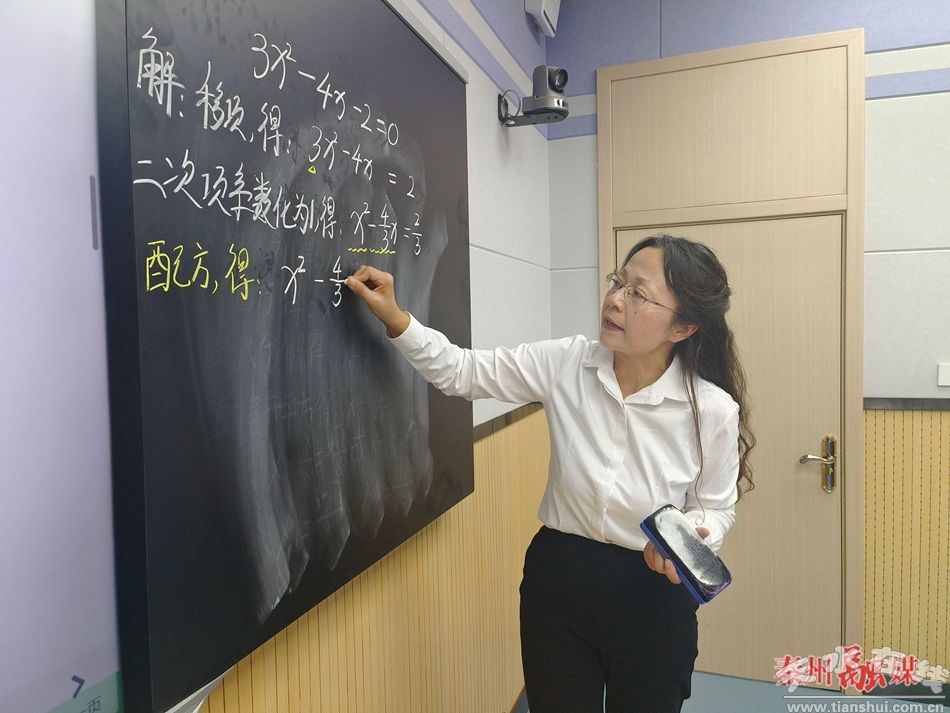 3x² - 4x - 2 = 0
解：移项，得：3x² - 4x = 2
二次项系数化为1，得：x² - 4/3 x = 2/3
配方，得：x² - 4/3
秦州融媒
www.tianshui.com.cn
页